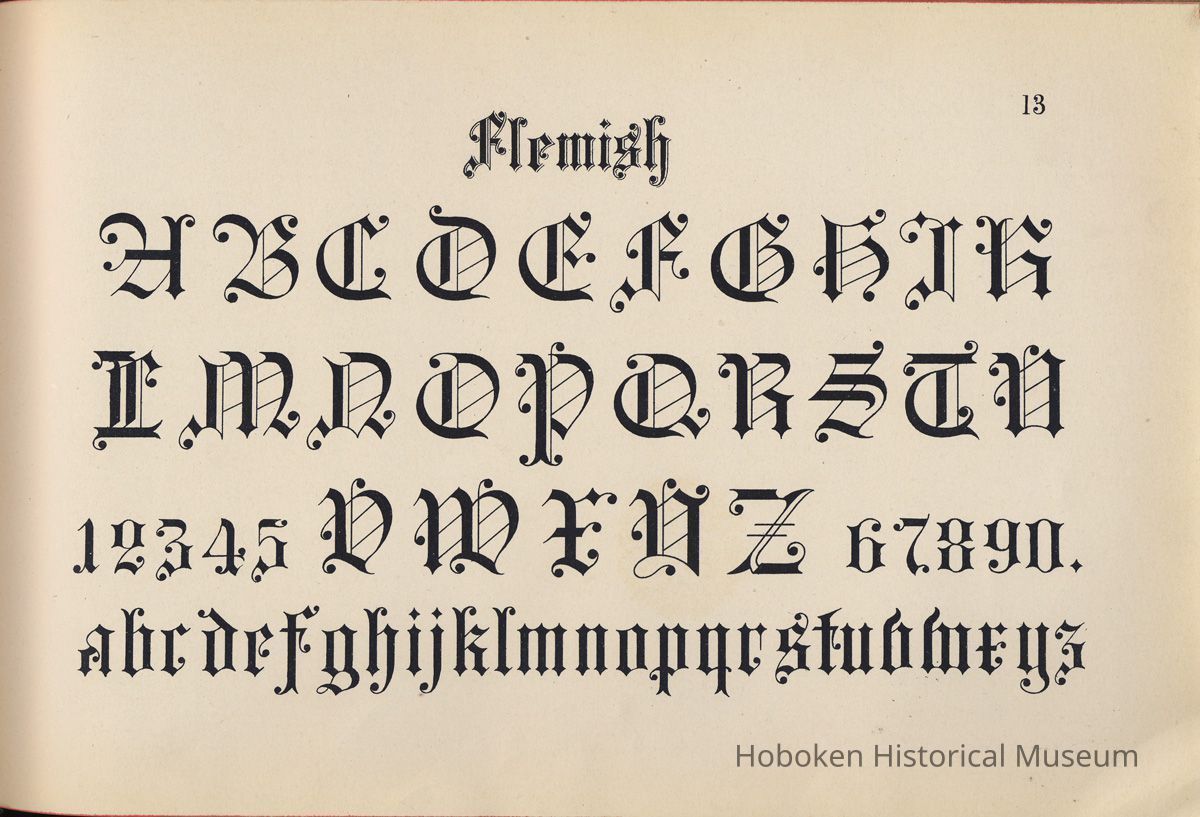 13
Flemish
A B C D E F G H I K
L M N O P Q R S T U
1 2 3 4 5 V W X Y Z 6 7 8 9 0.
a b c d e f g h i j k l m n o p q r s t u v w x y z
Hoboken Historical Museum